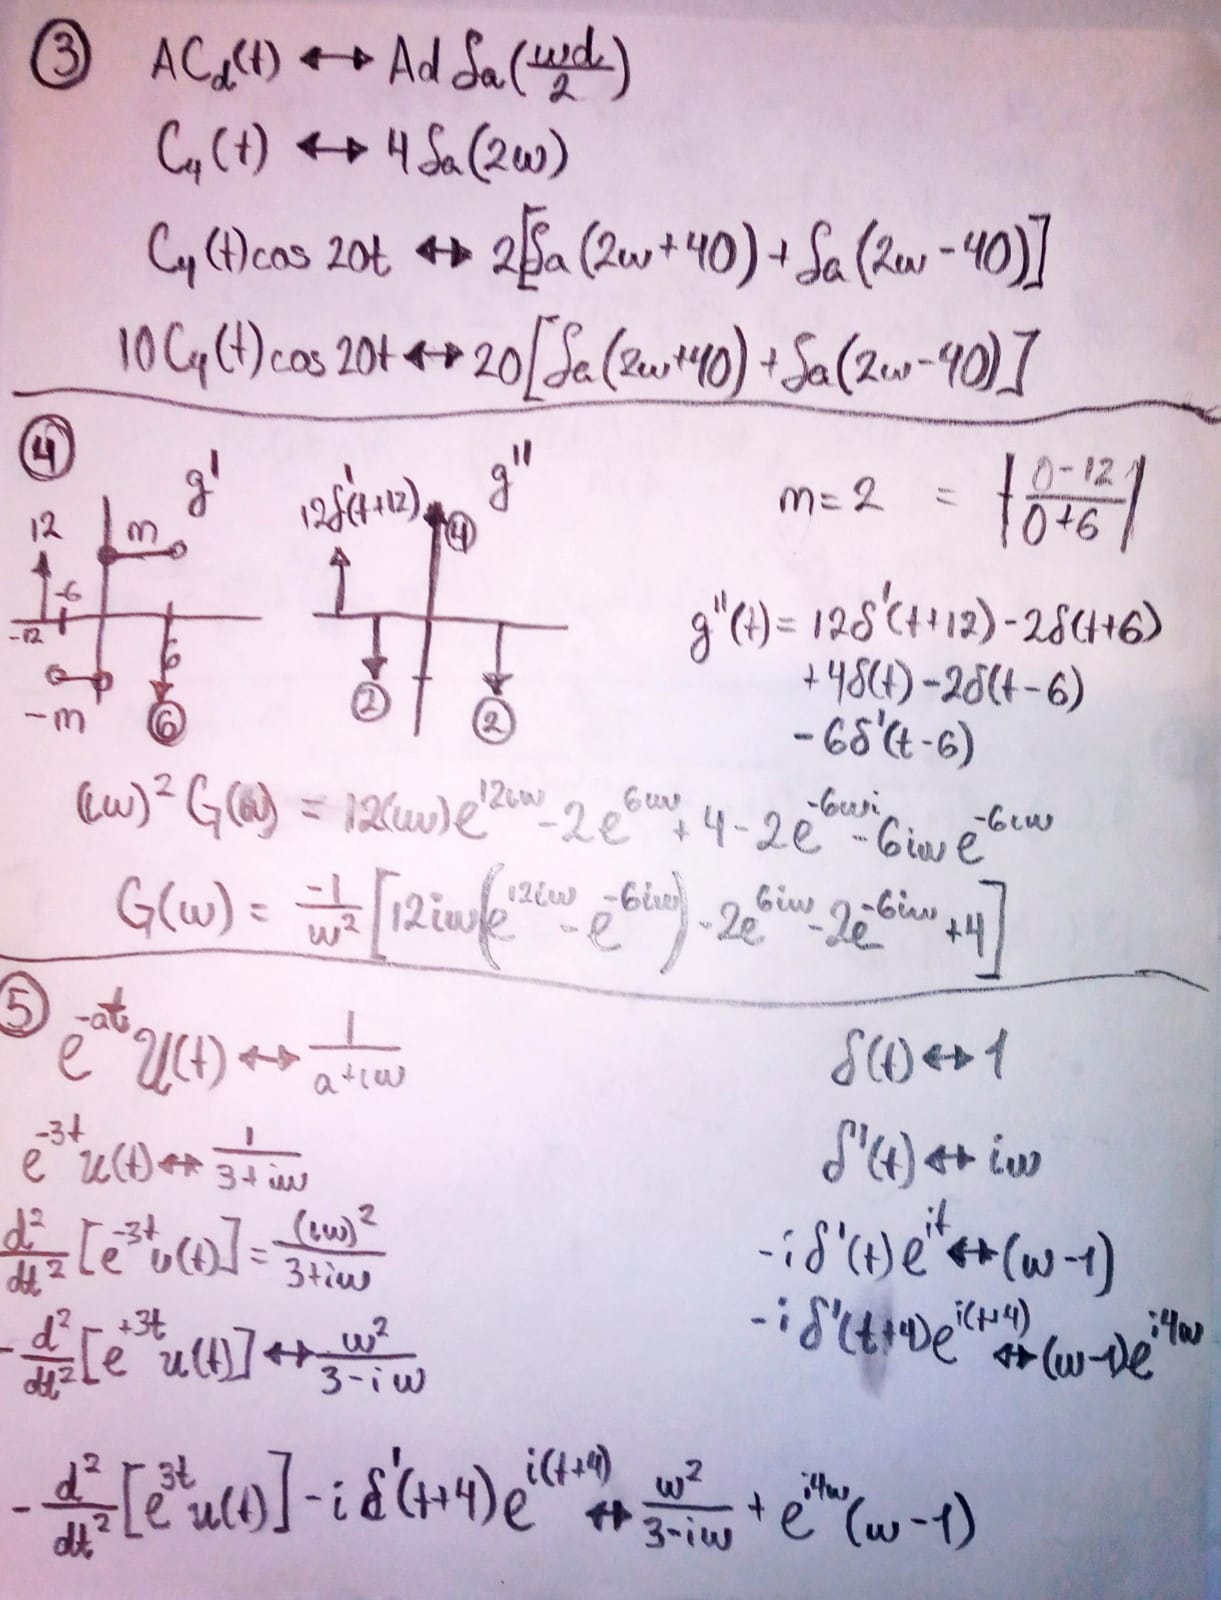 ③ AC_d(t) ↔ Ad Sa(ωd/2)
C₄(t) ↔ 4 Sa(2ω)
C₄(t)cos 20t ↔ 2[Sa(2ω+40)+Sa(2ω-40)]
10C₄(t)cos 20t ↔ 20[Sa(2ω+40)+Sa(2ω-40)]
④ g' g''
12 m 12δ'(t+12) ④
-12 -6 6
-m ⑥ ② ②
m=2 = |(0-12)/(0+6)|
g''(t)= 12δ'(t+12)-2δ(t+6)
+4δ(t)-2δ(t-6)
-6δ'(t-6)
(iω)² G(ω) = 12(iω)e^{12iω}-2e^{6iω}+4-2e^{-6ωi}-6iωe^{-6iω}
G(ω) = -1/ω² [12iω(e^{12iω}-e^{-6iω})-2e^{6iω}-2e^{-6iω}+4]
⑤ e^{-at} U(t) ↔ 1/(a+iω)
e^{-3t} u(t) ↔ 1/(3+iω)
d²/dt² [e^{-3t}u(t)] = (iω)²/(3+iω)
-d²/dt² [e^{+3t}u(t)] ↔ ω²/(3-iω)
δ(t) ↔ 1
δ'(t) ↔ iω
-iδ'(t)e^{it} ↔ (ω-1)
-iδ'(t+4)e^{i(t+4)} ↔ (ω-1)e^{i4ω}
-d²/dt² [e^{3t}u(t)]-iδ'(t+4)e^{i(t+4)} ↔ ω²/(3-iω) + e^{i4ω}(ω-1)